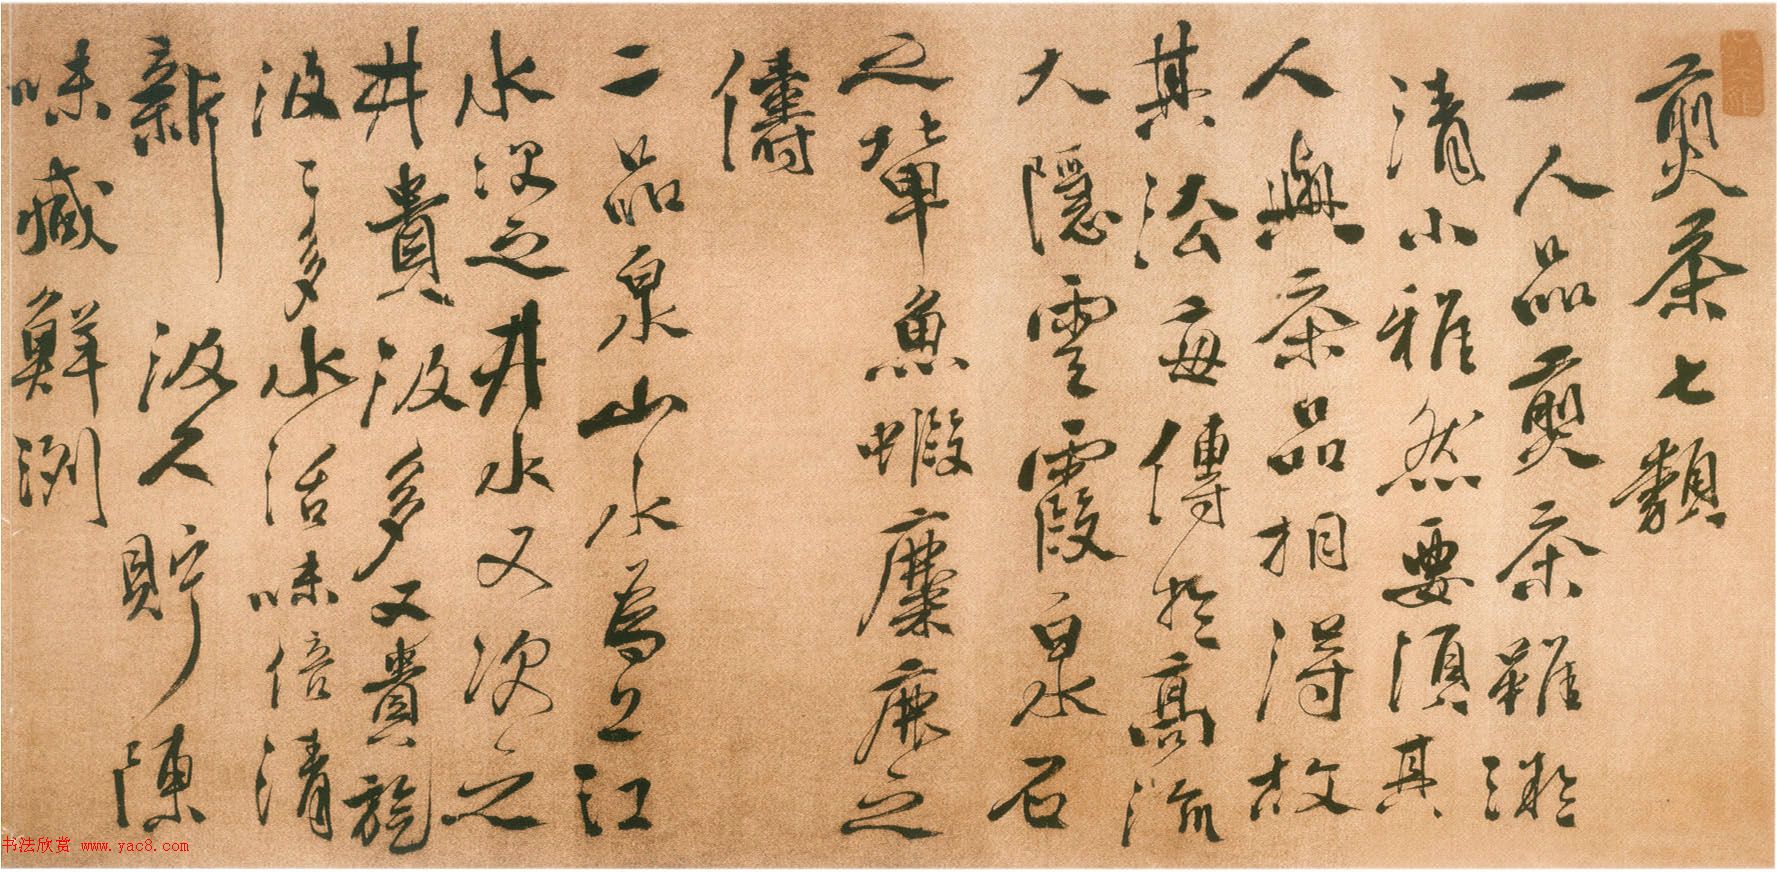 煎茶七類
一人品煎茶雖凝
清小雅然要須其
人與茶品相得故
其法每傳於高流
大隱雲霞泉石
之輩魚蝦麋鹿之
儔
二品泉山水為上江
水次之井水又次之
井貴汲多又貴旋
汲〻多水活味倍清
新汲久貯陳
味減鮮冽
书法欣赏 www.yac8.com